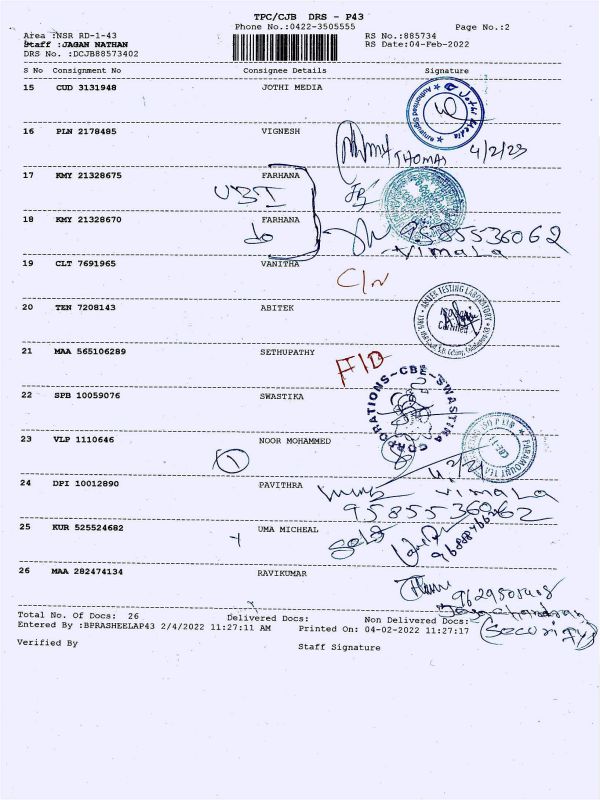 TPC/CJB DRS - P43
Phone No.:0422-3505555
Page No.:2
Area :NSR RD-1-43
RS No.:885734
Staff :JAGAN NATHAN
RS Date:04-Feb-2022
DRS No. :DCJB88573402
S No Consignment No Consignee Details Signature
15 CUD 3131948 JOTHI MEDIA
Jothi Media
Authorised Signature
16 PLN 2178485 VIGNESH
THOMAS 4/2/23
17 KMY 21328675 FARHANA
UBI
18 KMY 21328670 FARHANA
do
9585536062
Vimala
19 CLT 7691965 VANITHA
20 TEN 7208143 ABITEK
ABITEK TESTING LABORATORY
Certified
21 MAA 565106289 SETHUPATHY
22 SPB 10059076 SWASTIKA
SWASTIKA CORPORATIONS-CBE
23 VLP 1110646 NOOR MOHAMMED
1
PARAMOUNT TEA
24 DPI 10012890 PAVITHRA
Vimala
9585536062
25 KUR 525524682 UMA MICHEAL
Self
26 MAA 282474134 RAVIKUMAR
(Security)
Total No. Of Docs: 26 Delivered Docs: Non Delivered Docs:
Entered By :BPRASHEELAP43 2/4/2022 11:27:11 AM Printed On: 04-02-2022 11:27:17
Verified By
Staff Signature